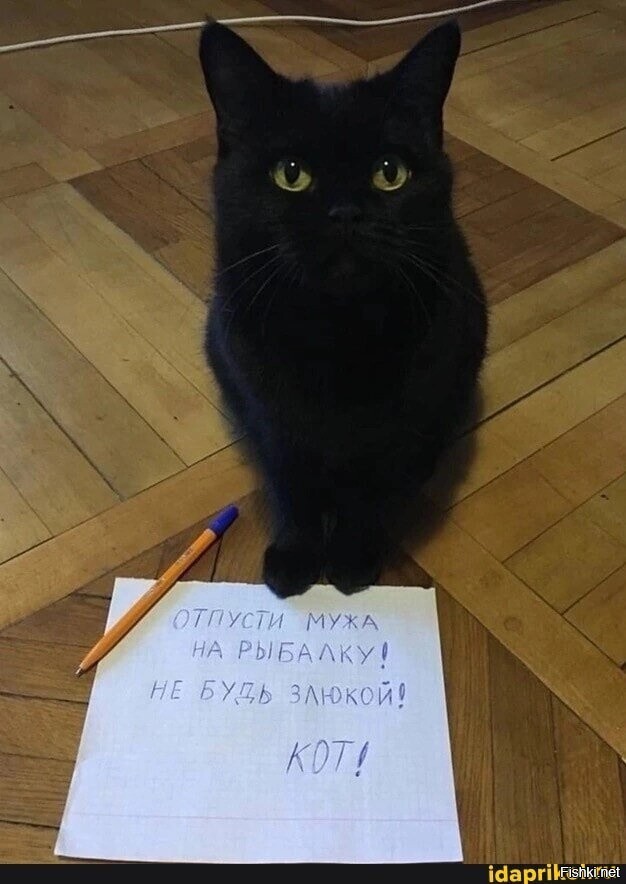 ОТПУСТИ МУЖА
НА РЫБАЛКУ!
НЕ БУДЬ ЗЛЮКОЙ!
КОТ!
Fishki.net